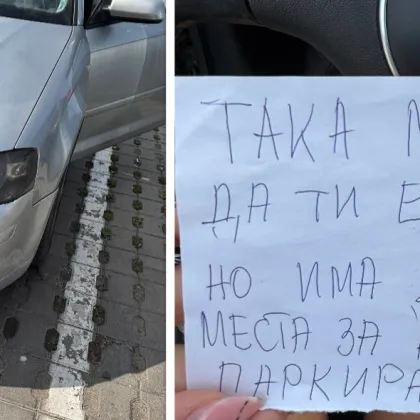 ТАКА
ДА ТИ Е
НО ИМА
МЕСТА ЗА
ПАРКИРА